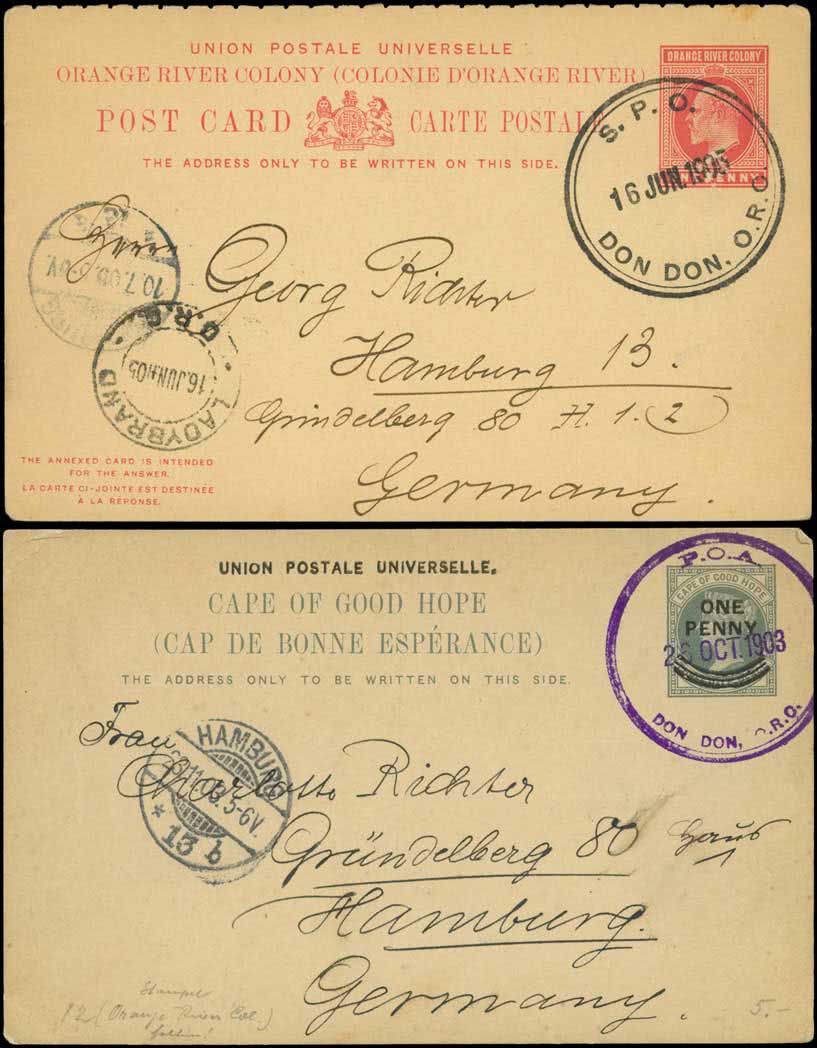 UNION POSTALE UNIVERSELLE
ORANGE RIVER COLONY (COLONIE D'ORANGE RIVER)
POST CARD CARTE POSTALE
THE ADDRESS ONLY TO BE WRITTEN ON THIS SIDE.
ORANGE RIVER COLONY
PENNY
S. P. O.
16 JUN. 1905
DON DON, O.R.C.
10.7.05.
LADYBRAND
16 JUN 05
O.R.C.
Herrn
Georg Richter
Hamburg 13.
Grindelberg 80 H. 1. 2
Germany.
THE ANNEXED CARD IS INTENDED
FOR THE ANSWER.
LA CARTE CI-JOINTE EST DESTINÉE
À LA RÉPONSE.
UNION POSTALE UNIVERSELLE.
CAPE OF GOOD HOPE
(CAP DE BONNE ESPÉRANCE)
THE ADDRESS ONLY TO BE WRITTEN ON THIS SIDE.
CAPE OF GOOD HOPE
ONE
PENNY
P.O.A
26 OCT. 1903
DON DON, O.R.C.
HAMBURG
11.03. 5-6V.
* 13 b
Frau
Charlotte Richter
Gründelberg 80 Haus 1
Hamburg.
Germany.
Stempel
12 (Orange River Col.)
5.-